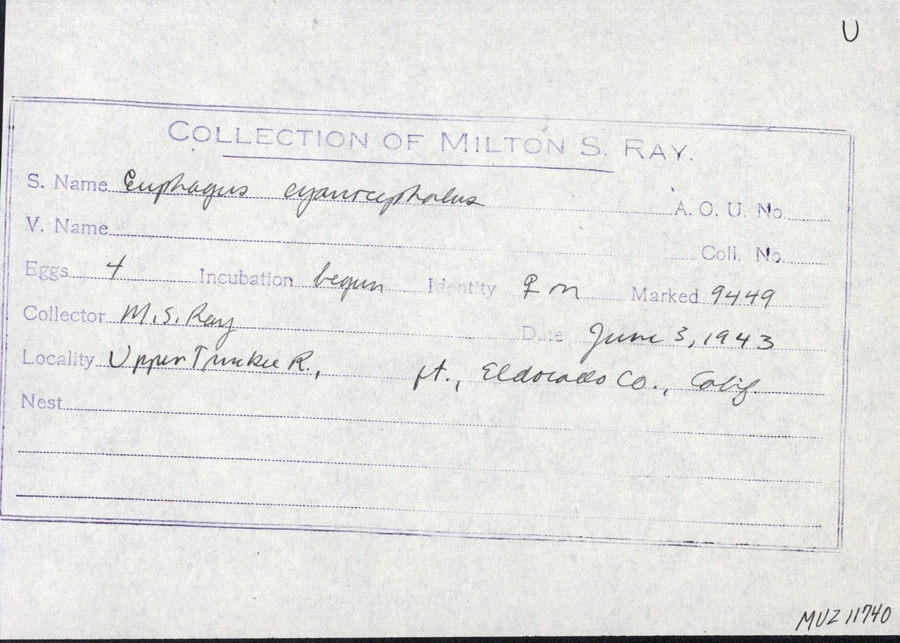 U
COLLECTION OF MILTON S. RAY.
S. Name Euphagus cyanocephalus A. O. U. No.
V. Name Coll. No.
Eggs 4 Incubation begun Identity ♀ on Marked 9449
Collector M. S. Ray Date June 3, 1943
Locality Upper Truckee R., ft., Eldorado Co., Calif.
Nest
MVZ 11740